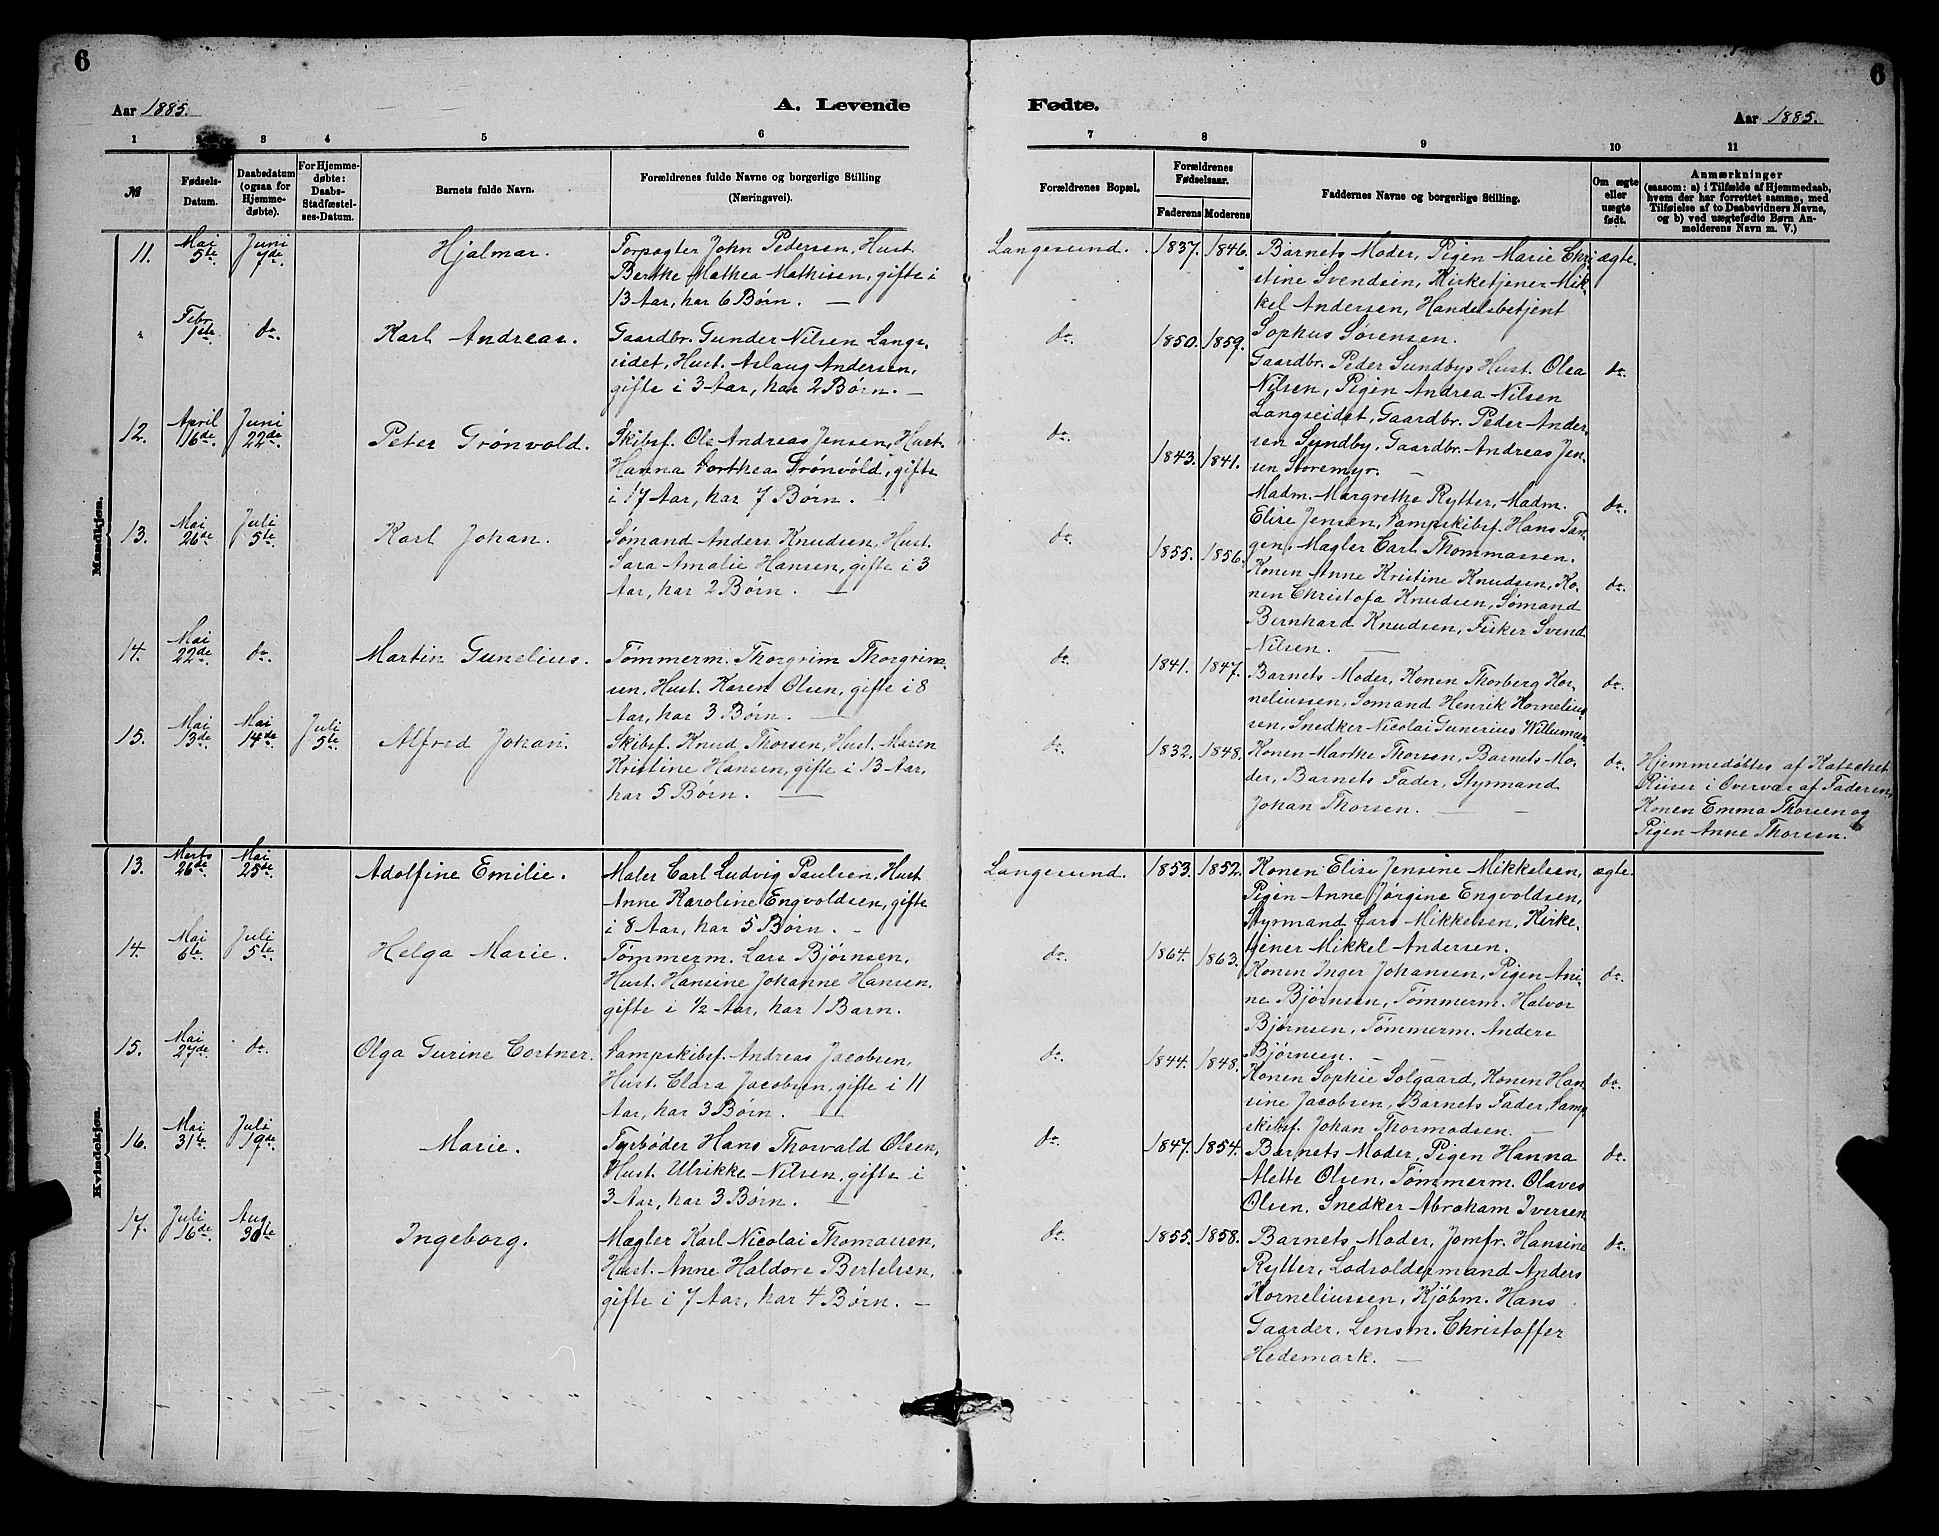 6
Aar 1885.
A. Levende
1 2 3 4 5 6
№
Fødsels-
Datum.
Daabsdatum
(ogsaa for
Hjemme-
døbte).
For Hjemme-
døbte:
Daabs-
Stadfæstel-
ses-Datum.
Barnets fulde Navn.
Forældrenes fulde Navne og borgerlige Stilling
(Næringsvei).
Mandkjøn.
11.
Mai
5te
Juni
7de
Hjalmar.
Forpagter John Pedersen, Hust.
Berthe Mathea Mathisen, gifte i
13 Aar, har 6 Børn. —
"
Febr.
1ste
do.
Karl Andreas.
Gaardbr. Gunder Nilsen Lang-
seidet, Hust. Aslaug Andersen,
gifte i 3 Aar, har 2 Børn. —
12.
April
16de
Juni
22de
Peter Grönvold.
Skibsf. Ole Andreas Jensen, Hust.
Hanna Dorthea Grönvöld, gifte
i 17 Aar, har 7 Børn. —
13.
Mai
26de
Juli
5te
Karl Johan.
Sømand Anders Knudsen, Hust.
Sara Amalie Hansen, gifte i 3
Aar, har 2 Børn. —
14.
Mai
22de
do.
Martin Gunelius.
Tömmerm. Thorgrim Thorgrim-
sen, Hust. Karen Olsen, gifte i 8
Aar, har 3 Børn. —
15.
Mai
13de
Mai
14de
Juli
5te
Alfred Johan.
Skibsf. Knud Thorsen, Hust. Maren
Kristine Hansen, gifte i 13 Aar,
har 5 Børn. —
Kvindekjøn.
13.
Marts
26de
Mai
25de
Adolfine Emilie.
Maler Carl Ludvig Paulsen, Hust
Anne Karoline Engvoldsen, gifte
i 8 Aar, har 5 Børn. -
14.
Mai
6te
Juli
5te
Helga Marie.
Tömmerm. Lars Bjørnsen,
Hust. Hansine Johanne Hansen,
gifte i 1/2 Aar, har 1 Barn.
15.
Mai
27de
do.
Olga Gurine Cortner.
Dampskibsf. Andreas Jacobsen,
Hust. Clara Jacobsen, gifte i 11
Aar, har 3 Børn. —
16.
Mai
31te
Juli
19de
Marie.
Fyrbøder Hans Thorvald Olsen,
Hust. Ulrikke Nilsen, gifte i
3 Aar, har 3 Børn. —
17.
Juli
16de
Aug.
30te
Ingeborg.
Mægler Karl Nicolai Thomassen,
Hust. Anne Haldore Bertelsen,
gifte i 7 Aar, har 4 Børn. —
6
Fødte.
Aar 1885.
7 8 9 10 11
Forældrenes Bopæl.
Forældrenes
Fødselsaar.
Faderens Moderens
Faddernes Navne og borgerlige Stilling.
Om ægte
eller
uægte
født.
Anmærkninger
(saasom: a) i Tilfælde af Hjemmedaab,
hvem der har forrettet samme, med
Tilføielse af to Daabsvidners Navne,
og b) ved uægtefødte Børn An-
melderens Navn m. V.)
Langesund. 1837. 1846.
Barnets Moder, Pigen Marie Chri-
stine Svendsen, Kirketjener Mik-
kel Andersen, Handelsbetjent
Sophus Sørensen.
ægte.
do. 1850. 1859.
Gaardbr. Peder Sundbys Hust. Olea
Nilsen, Pigen Andrea Nilsen
Langseidet, Gaardbr. Peder Ander-
sen Sundby, Gaardbr. Andreas Jen-
sen Storemyr. —
do.
do. 1843. 1841.
Madm. Margrethe Rytter, Madm.
Elise Jensen, Dampskibsf. Hans Tan-
gen, Mægler Carl Thommassen.
do.
do. 1855. 1856.
Konen Anne Kristine Knudsen, Ko-
nen Christofa Knudsen, Sømand
Bernhard Knudsen, Fisker Svend
Nilsen. —
do.
do. 1841. 1847.
Barnets Moder, Konen Thorberg Kor-
neliussen, Sømand Henrik Kornelius-
sen, Snedker Nicolai Gunerius Willumsen
do.
do. 1832. 1848.
Konen Marthe Thorsen, Barnets Mo-
der, Barnets Fader, Styrmand
Johan Thorsen. —
do.
Hjemmedöbtes af Katechet
Riiser i Overvær af Faderen,
Konen Emma Thorsen og
Pigen Anne Thorsen.
Langesund. 1853. 1852.
Konen Elise Jensine Mikkelsen,
Pigen Anne Jørgine Engvoldsen,
Styrmand Lars Mikkelsen, Kirke-
tjener Mikkel Andersen.
ægte
do. 1864. 1863.
Konen Inger Johansen, Pigen Ani-
ne Bjørnsen, Tömmerm. Halvor
Bjørnsen, Tømmerm. Anders
Bjørnsen. —
do.
do. 1844. 1848.
Konen Sophie Solgaard, Konen Han-
sine Jacobsen, Barnets Fader, Damp-
skibsf. Johan Thormodsen. —
do.
do. 1847. 1854.
Barnets Moder, Pigen Hanna
Alette Olsen, Tömmerm. Olaves
Olsen, Snedker Abraham Iversen
do.
do. 1855. 1858.
Barnets Moder, Jomfr. Hansine
Rytter, Lodsoldermand Anders
Korneliussen, Kjöbm. Hans
Gaarder, Lensm. Christoffer
Hedemark. —
do.